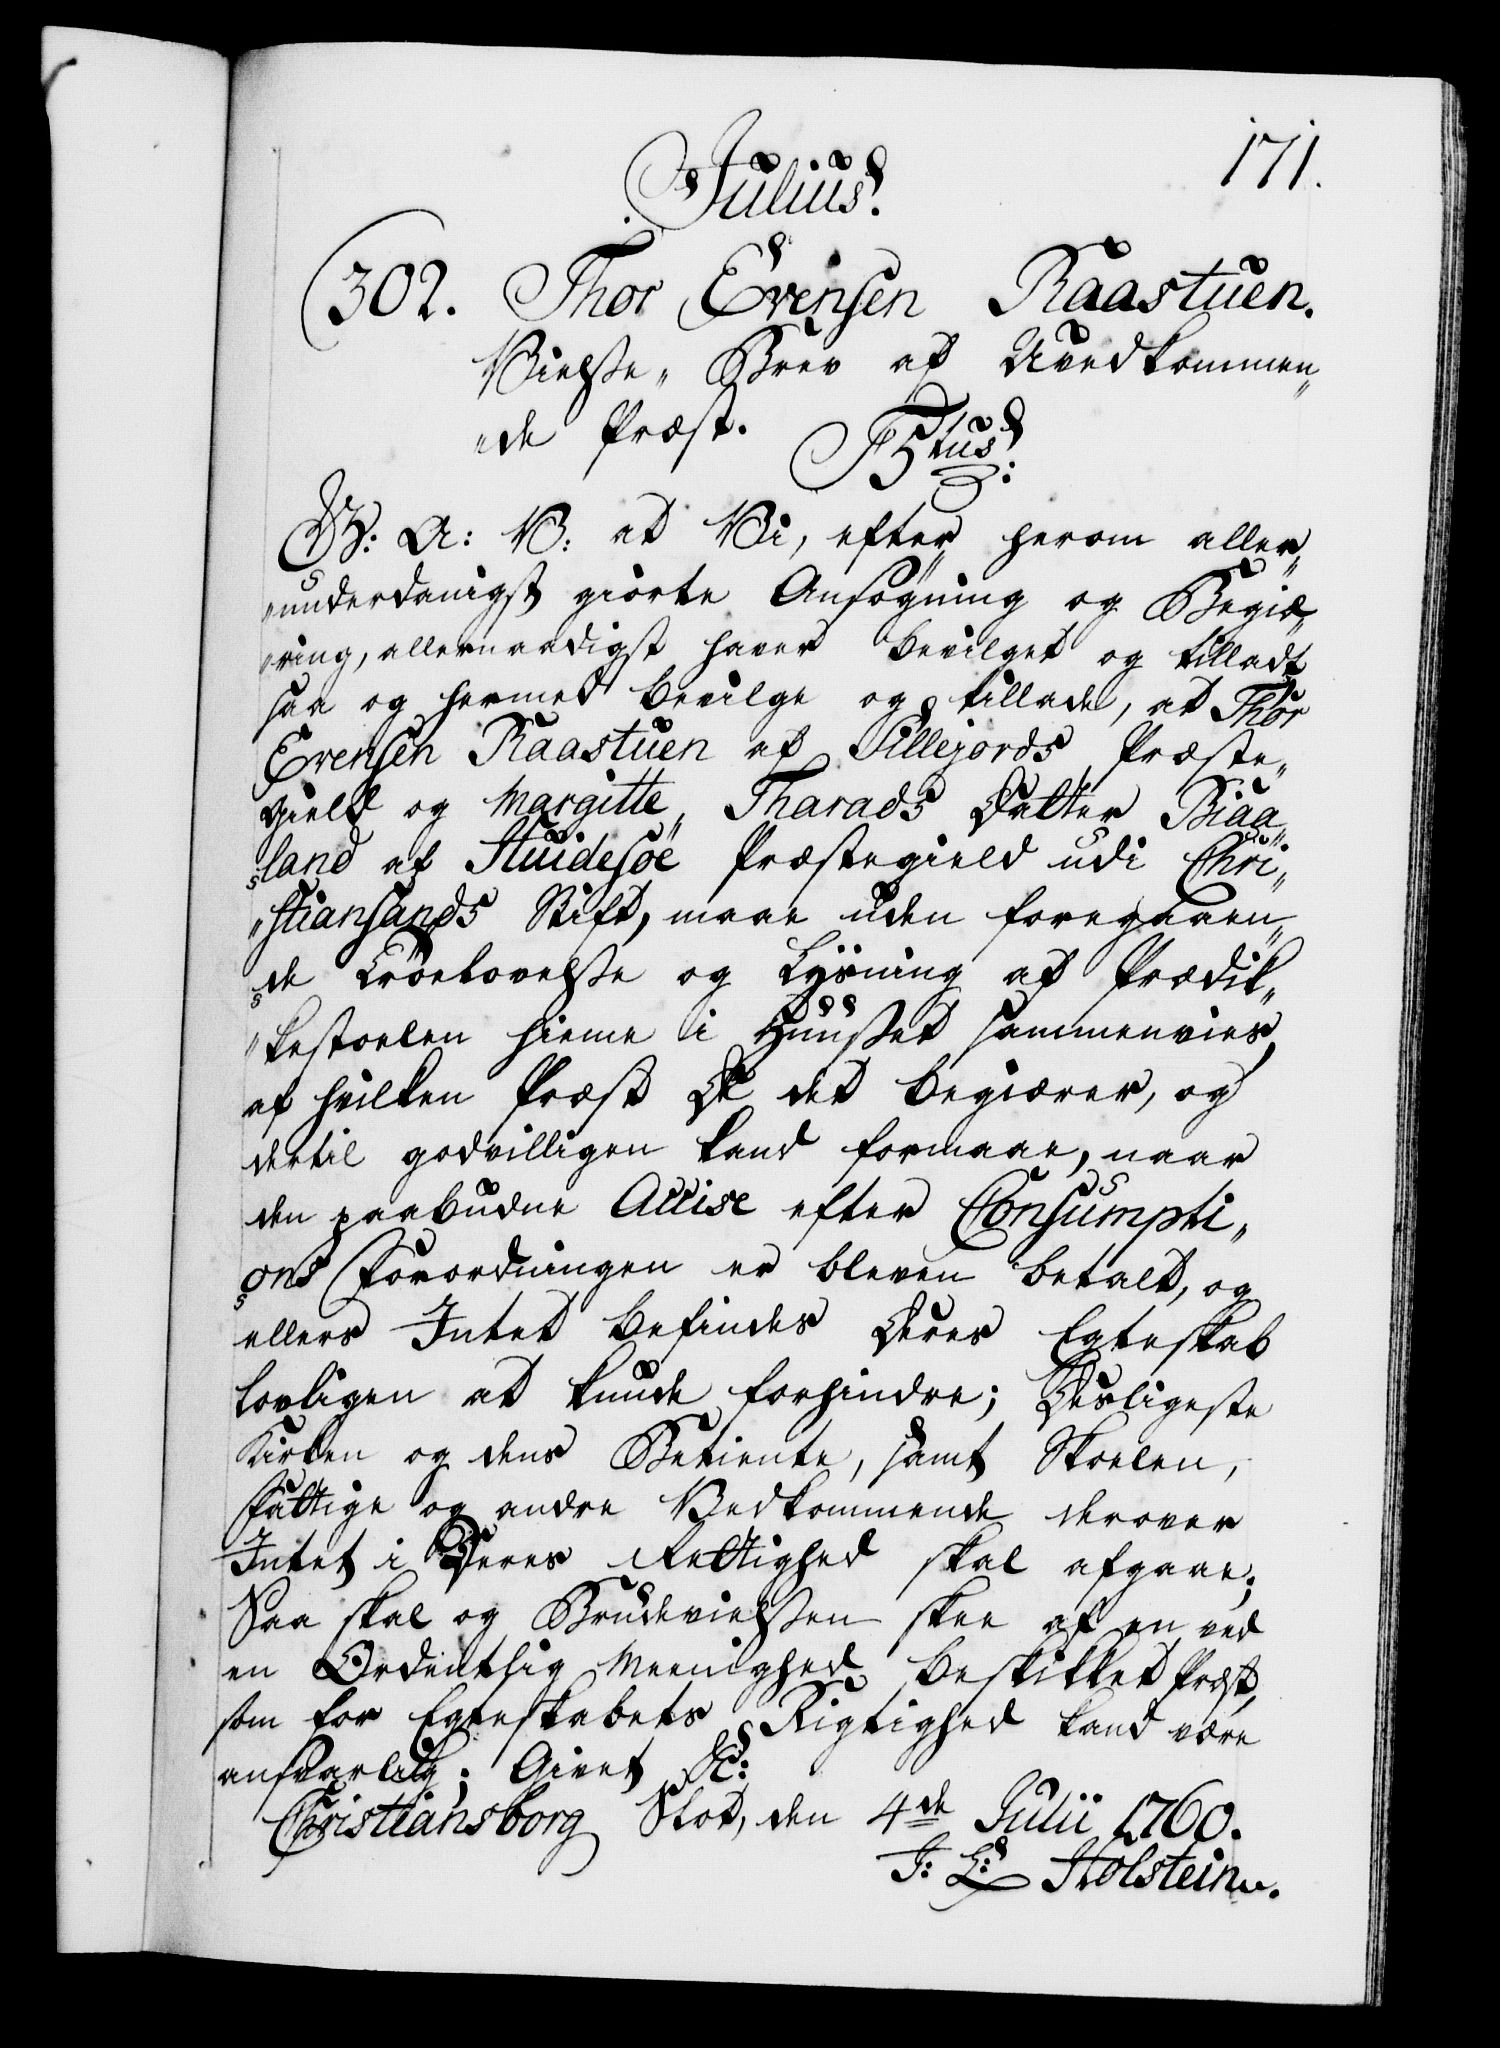 171.
Julius.
302. Thor Evensen Raastuen.
Vielse„ Brev af Uvedkommen„
„de Præst. F5tus:
G: A: V: at Vi, efter herom aller„
„underdanigst giorte Ansøgning og Begiæ„
„ring, allernaadigst haver bevilget og tilladt
saa og hermed bevilge og tillade, at Thor
Evensen Raastuen af Sillejords Præste„
gield og Margitte Tharads Datter Biaa„
land af Huidesöe Præstegield udi Chri„
„stiansands Stift, maae uden foregaaen„
de Troelovelse og Lysning af Prædik„
„kestoelen hieme i Huuset sammenvies,
af hvilken Præst De det begiærer, og
dertil godvilligen kand formaae, naar
den paabudne Accise efter Consumpti„
ons Forordningen er bleven betalt, og
ellers Intet befindes Deres Egteskab
lovligen at kunde forhindre; Desligeste
Kirken og dens Betiente, samt Skoelen,
Fattige og andre Vedkommende derover
Intet i Deres Rettighed skal afgaae;
Saa skal og Brudevielsen skee af en ved
en Ordentlig Meenighed beskikket Præst,
som for Egteskabets Rigtighed kand være
ansvarlig; Givet &c:
Christiansborg Slot, den 4de Julii 1760.
J: L: Holstein.